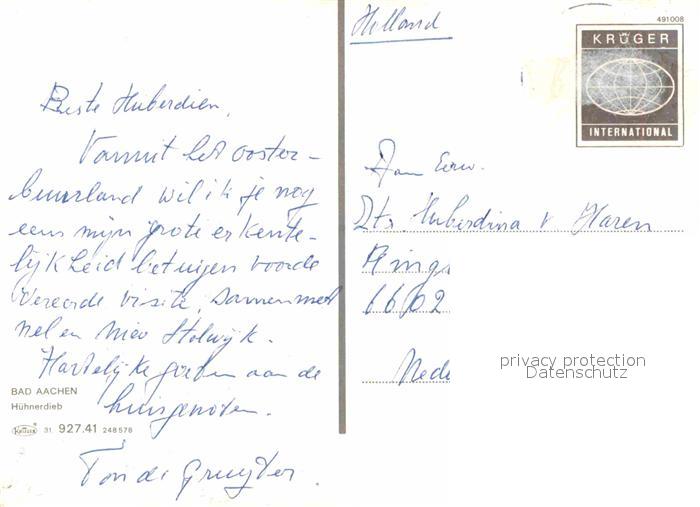 Holland
491008
KRÜGER
INTERNATIONAL
Beste Huberdien,
Vanuit het ooster-
buurland wil ik je nog
eens mijn grote erkente-
lijkheid betuigen voor de
vereerde visite, samen met
nel en Stolwijk.
Hartelijke groeten aan de
huisgenoten.
Ton de Gruyter.
BAD AACHEN
Hühnerdieb
KRÜGER 31. 927.41 248578
Aan Eerw.
Zts. Huberdina v Haren
Rings
6602
Nede
privacy protection
Datenschutz